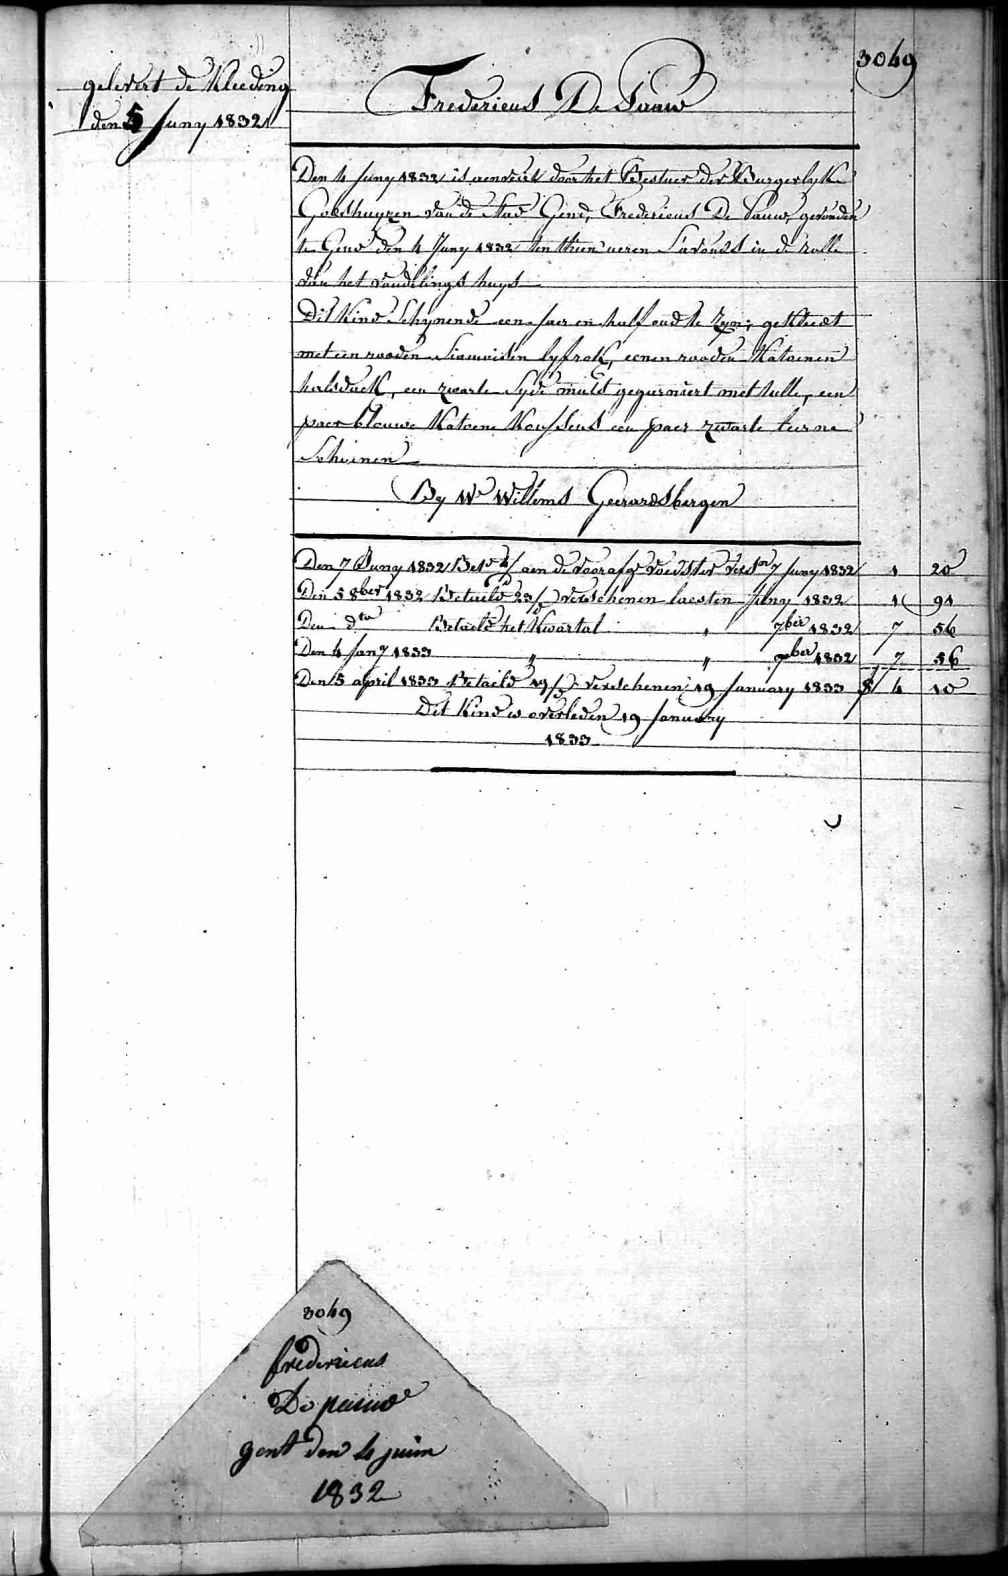 3049
gelevert de Kleeding
den 5 Juny 1832
Fredericus De Pauw
Den 4 Juny 1832 is aenveirt door het Bestuer der Burgerlyke
Godshuyzen van de Stad Gend, Fredericus De Pauw, gevonden
te Gend den 4 Juny 1832 ten thien ueren S'avonds in de rolle
van het vondelings huys
Dit Kind Schynende een Jaer en half oud te zyn; gekleedt
met een rooden Siamoisen lyfrok, eenen rooden Katoenen
halsdoek, een zwarte Syde muts gegarniert met tulle, een
paer blauwe Katoene Koussens een paer zwarte leerne
Schoenen
By We Willems Geerardsbergen
Den 7 Juny 1832 Bet 4/ aen de voorafg voedster vers 7 Juny 1832 1 20
Den 5 8ber 1832 Betaeld 23/ verschenen laesten Juny 1832 1 91
Den dto Betaeld het Kwartal " 7ber 1832 7 56
Den 4 Jany 1833 " " 9ber 1832 7 56
Den 5 april 1833 Betaeld 19/ verschenen 19 January 1833 4 10
Dit Kind is overleden 19 January
1833
3049
fredericus
De pauw
gent den 4 juin
1832